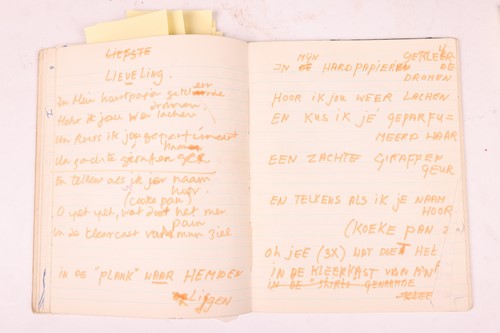 LIEFSTE
LIEVELING.
In Mijn hardpapier
dromen.
Hoor ik jou weer lachen
Een kus ik jou geparfumeerd
Een zachte giraffen
En telkens als ik jou naam
hoor.
(coeke pan)
O jee jee, wat doet het me
pain
in de kleercast van mijn ziel
IN DE "PLANK" NAAR HEMDEN
LIGGEN
MIJN GEKLEUR
IN DE HARDPAPIEREN DE
DROMEN
HOOR IK JOU WEER LACHEN
EN KUS IK JE GEPARFU=
MEERD HAAR
EEN ZACHTE GIRAFFEN
GEUR
EN TELKENS ALS IK JE NAAM
HOOR
(KOEKE PAN 2
OH JEE (3X) WAT DOET HET
IN DE KLEERKAST VAN MIJN
IN DE "SHIRTS GENAAMDE